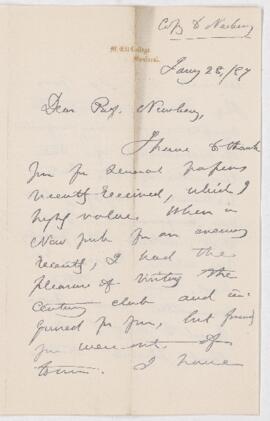 Copy to Newberry
McGill College
Montreal.
Jany 28, /87
Dear Prof. Newberry,
I have to thank
you for several papers
recently received, which I
highly value. When in
New York for an evening
recently, I had the
pleasure of visiting the
Century Club and in-
quired for you, but found
you were out of
town. I have